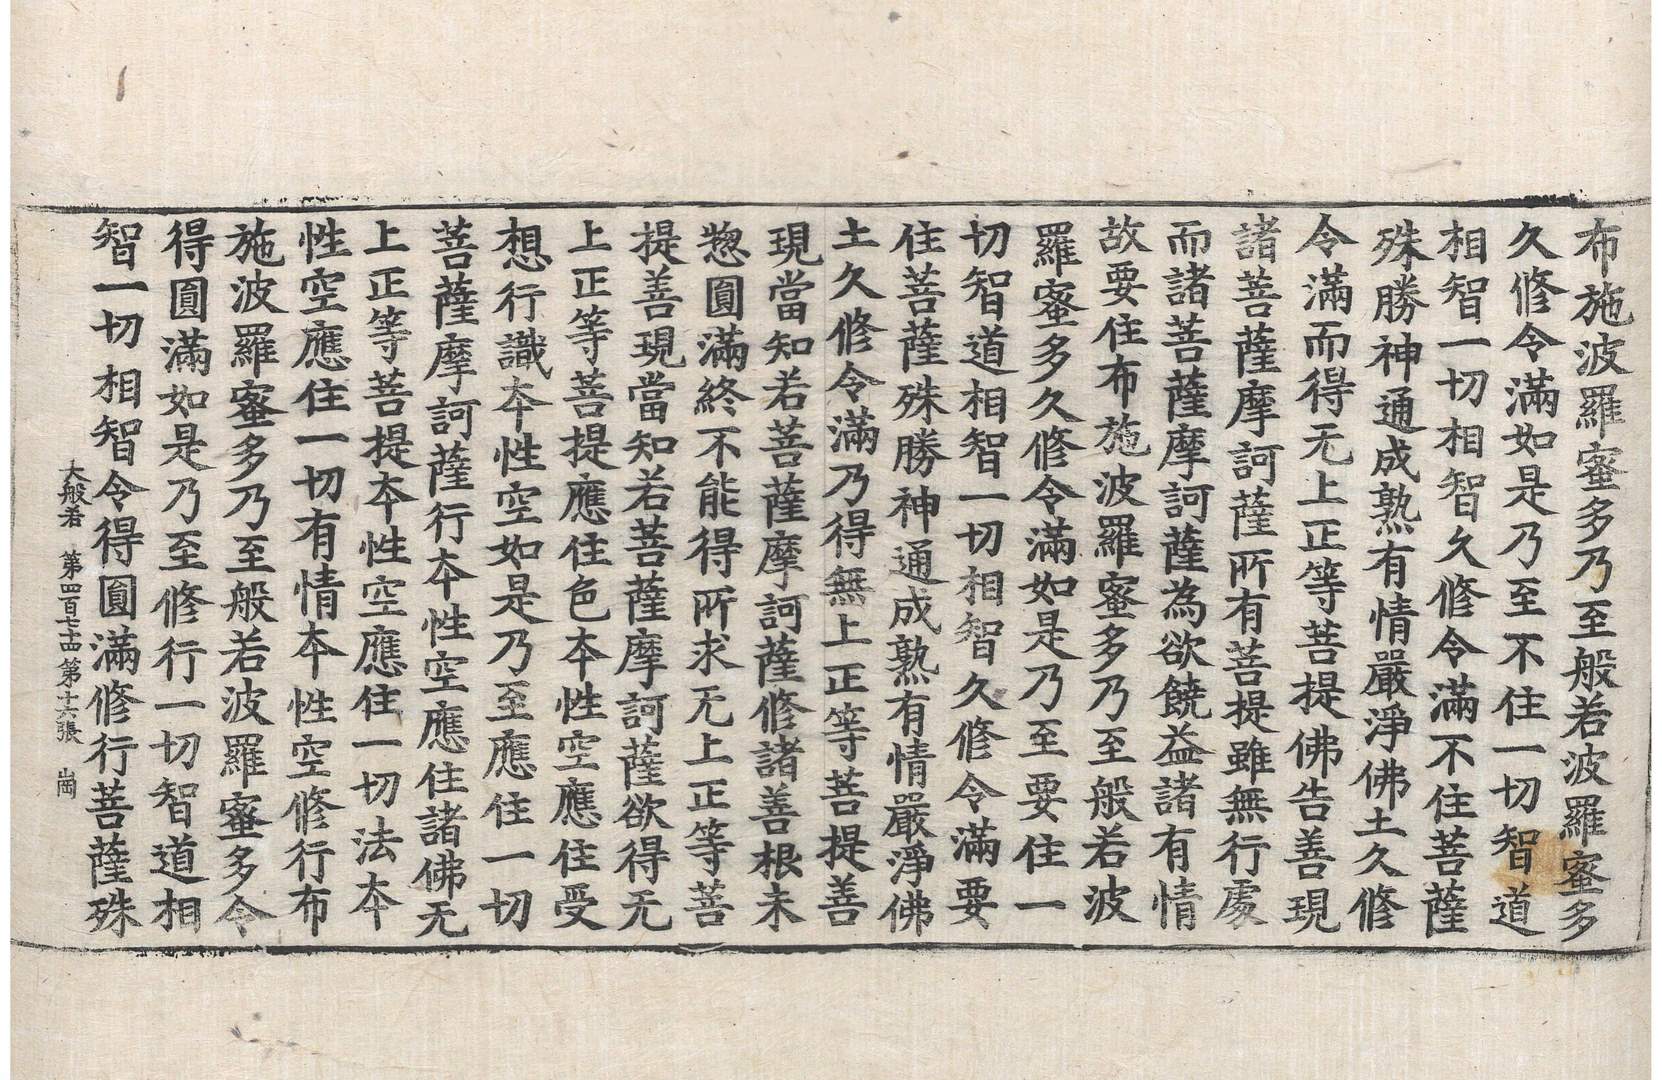 布施波羅蜜多乃至般若波羅蜜多
久修令滿如是乃至不住一切智道
相智一切相智久修令滿不住菩薩
殊勝神通成熟有情嚴淨佛土久修
令滿而得无上正等菩提佛告善現
諸菩薩摩訶薩所有菩提雖無行處
而諸菩薩摩訶薩為欲饒益諸有情
故要住布施波羅蜜多乃至般若波
羅蜜多久修令滿如是乃至要住一
切智道相智一切相智久修令滿要
住菩薩殊勝神通成熟有情嚴淨佛
土久修令滿乃得無上正等菩提善
現當知若菩薩摩訶薩修諸善根未
惣圓滿終不能得所求无上正等菩
提善現當知若菩薩摩訶薩欲得无
上正等菩提應住色本性空應住受
想行識本性空如是乃至應住一切
菩薩摩訶薩行本性空應住諸佛无
上正等菩提本性空應住一切法本
性空應住一切有情本性空修行布
施波羅蜜多乃至般若波羅蜜多令
得圓滿如是乃至修行一切智道相
智一切相智令得圓滿修行菩薩殊
大般若 第四百七十四 第十六張 崗